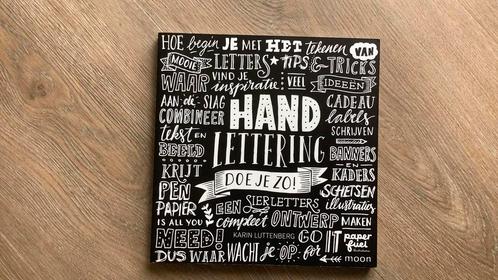 HOE begin JE MET HET tekenen VAN
MOOIE LETTERS ★ tips & TRICKS
WAAR VIND JE inspiratie VEEL IDEEËN
AAN de SLAG HAND CADEAU labels
COMBINEER SCHRIJVEN
tekst EN BEELD LETTERING BANNERS EN KADERS
KRIJT DOE JE ZO! SCHETSEN
PEN EEN SIERLETTERS illustraties
PAPIER compleet ONTWERP MAKEN
IS ALL YOU NEED! KARIN LUTTENBERG GO paper fuel
DUS WAAR WACHT je OP. for IT moon